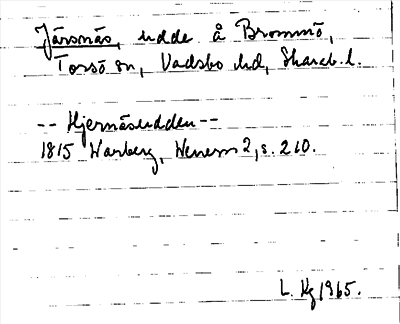 Järsnäs, udde å Brommö,
Torsö sn, Vadsbo hd, Skarab. l.
-- Hjernäsudden --
1815 Warberg, Wenern 2, s. 210.
L. Hg 1965.